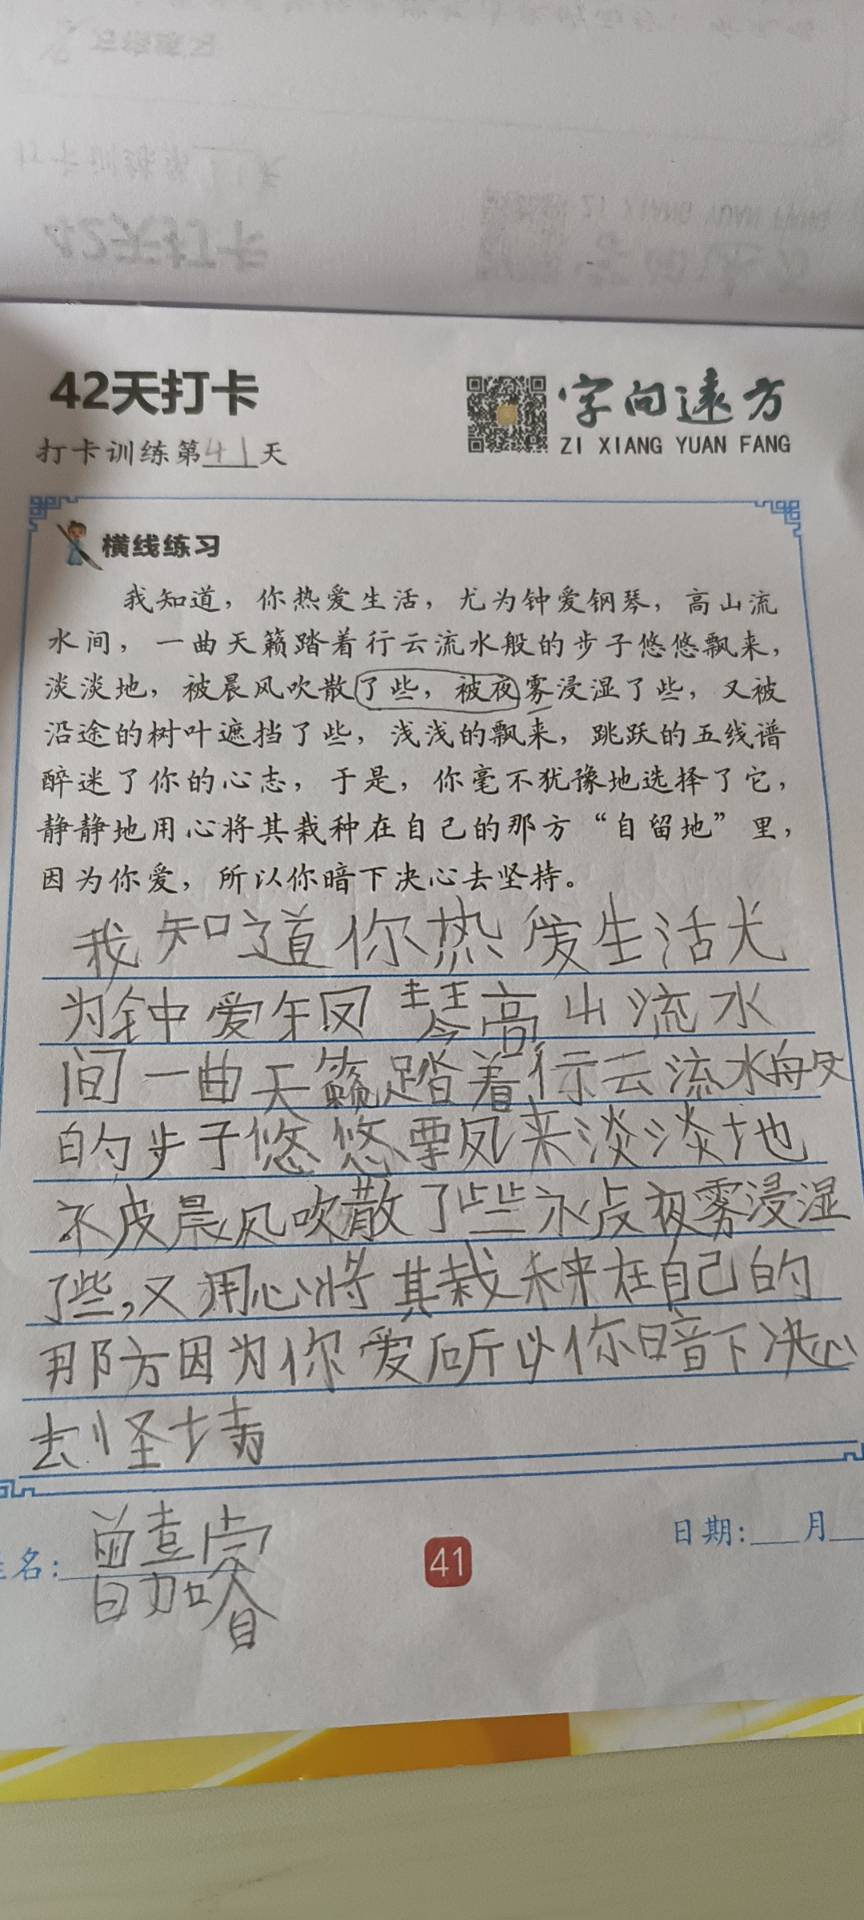 42天打卡
字向远方
打卡训练第41天
ZI XIANG YUAN FANG
横线练习
我知道，你热爱生活，尤为钟爱钢琴，高山流
水间，一曲天籁踏着行云流水般的步子悠悠飘来，
淡淡地，被晨风吹散了些，被夜雾浸湿了些，又被
沿途的树叶遮挡了些，浅浅的飘来，跳跃的五线谱
醉迷了你的心志，于是，你毫不犹豫地选择了它，
静静地用心将其栽种在自己的那方“自留地”里，
因为你爱，所以你暗下决心去坚持。
我知道你热爱生活尤
为钟爱钢琴高山流水
间一曲天籁踏着行云流水般
的步子悠悠飘来淡淡地
被晨风吹散了些被夜雾浸湿
了些，又用心将其栽在自己的
那方因为你爱所以你暗下决心
去
名：曾嘉睿
41
日期：月